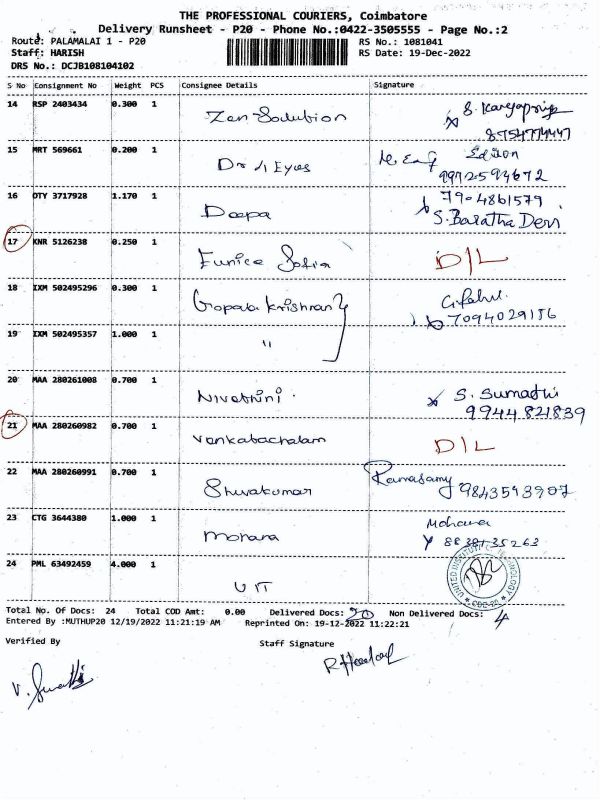 THE PROFESSIONAL COURIERS, Coimbatore
Delivery Runsheet - P20 - Phone No.:0422-3505555 - Page No.:2
Route: PALAMALAI 1 - P20 RS No.: 1081041
Staff: HARISH RS Date: 19-Dec-2022
DRS No.: DCJB108104102
S No Consignment No Weight PCS Consignee Details Signature
14 RSP 2403434 0.300 1 Zen Solution
8754774447
15 MRT 569661 0.200 1 Eyes
9992594672
16 OTY 3717928 1.170 1 Deepa 7904861579
S. Baratha Devi
17 KNR 5126238 0.250 1 Eunice Sofia D/L
18 IXM 502495296 0.300 1 Gopala Krishnan
7094029156
19 IXM 502495357 1.000 1 "
20 MAA 280261008 0.700 1 Nivethini. S. Sumathi
9944821839
21 MAA 280260982 0.700 1 Venkatachalam D/L
22 MAA 280260991 0.700 1 Shivakumar Ramasamy 9843593907
23 CTG 3644380 1.000 1 Mohana Mohana
8838735263
24 PML 63492459 4.000 1 UIT
UNITED INSTITUTE OF TECHNOLOGY
Total No. Of Docs: 24 Total COD Amt: 0.00 Delivered Docs: 20 Non Delivered Docs: 4
Entered By :MUTHUP20 12/19/2022 11:21:19 AM Reprinted On: 19-12-2022 11:22:21
Verified By Staff Signature